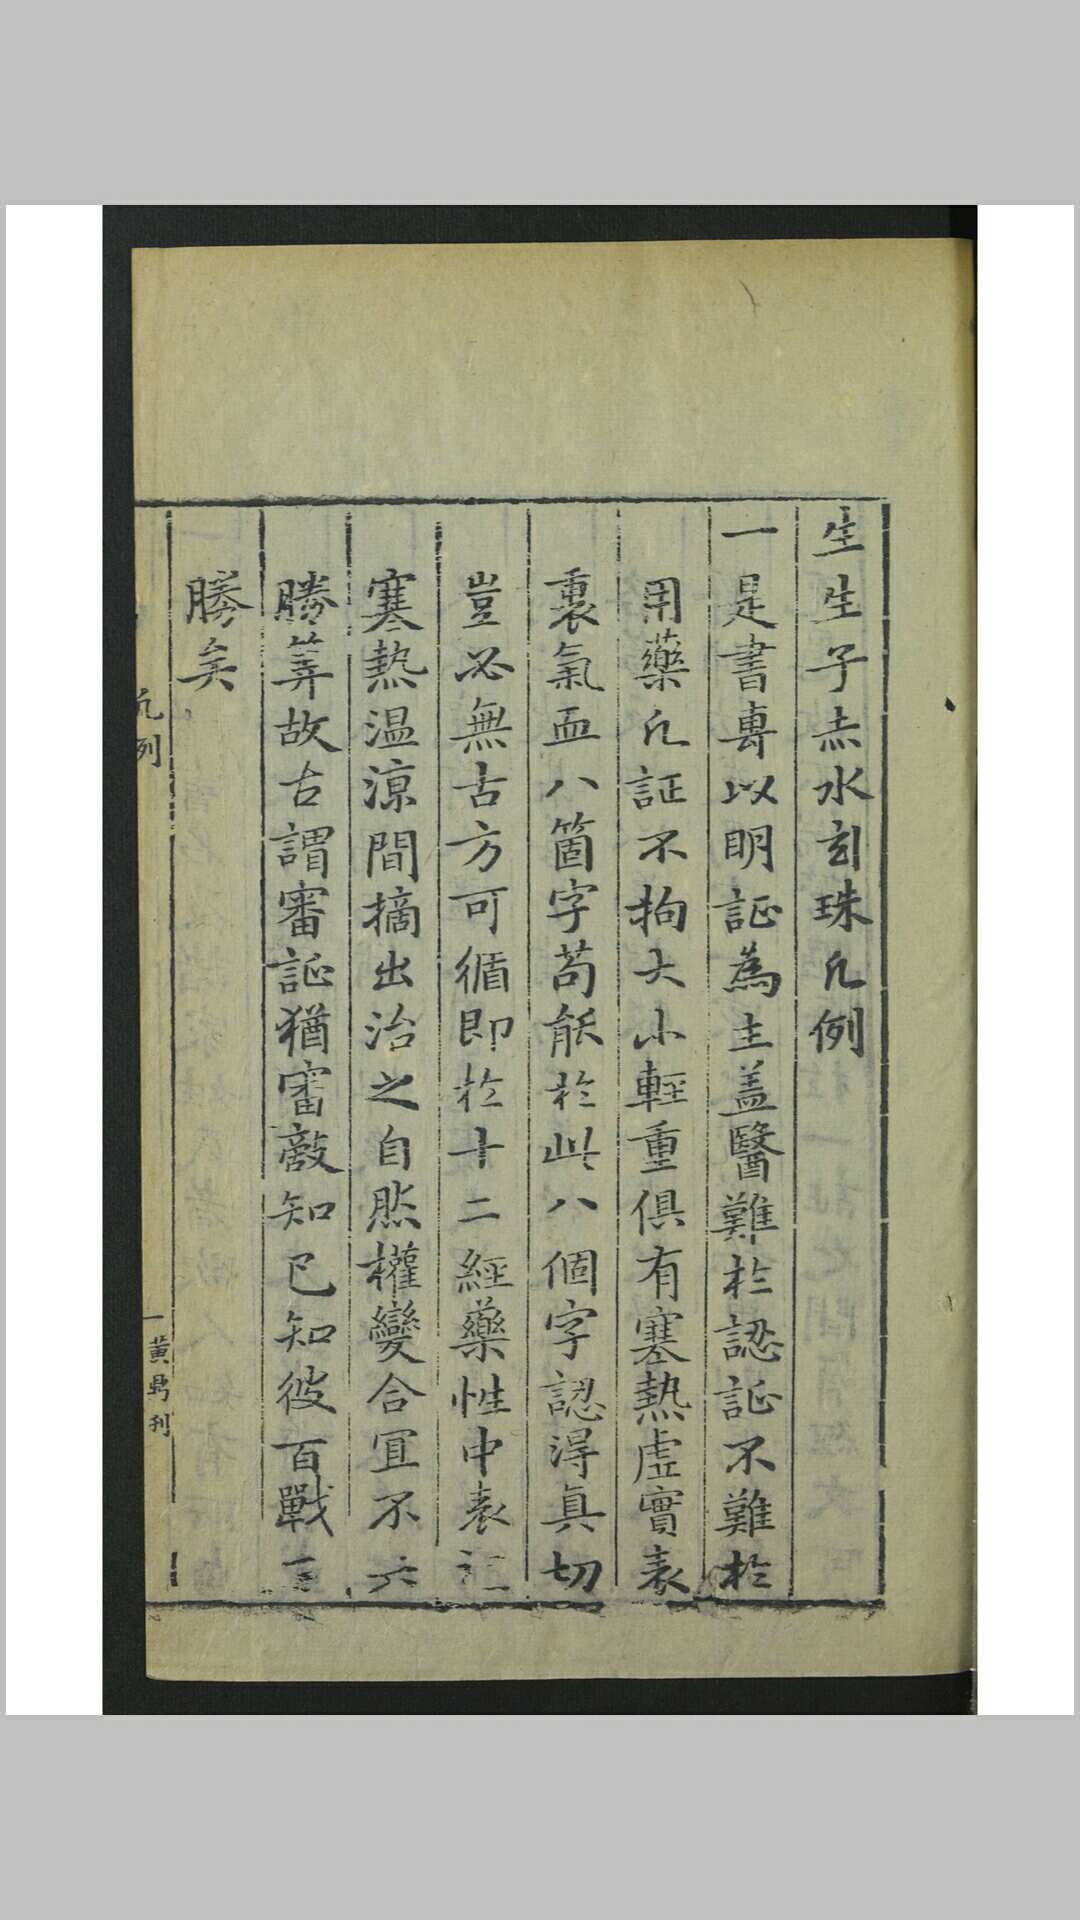 生生子赤水玄珠凡例
一是書專以明証為主蓋醫難於認証不難於
用藥凡証不拘大小輕重俱有寒熱虛實表
裏氣血八箇字苟能於此八個字認得真切
豈必無古方可循即於十二經藥性中表
寒熱温凉間摘出治之自然權變合宜不
勝筭故古謂審証猶審敵知己知彼百戰
勝矣
凡例
一
黃鼎刊